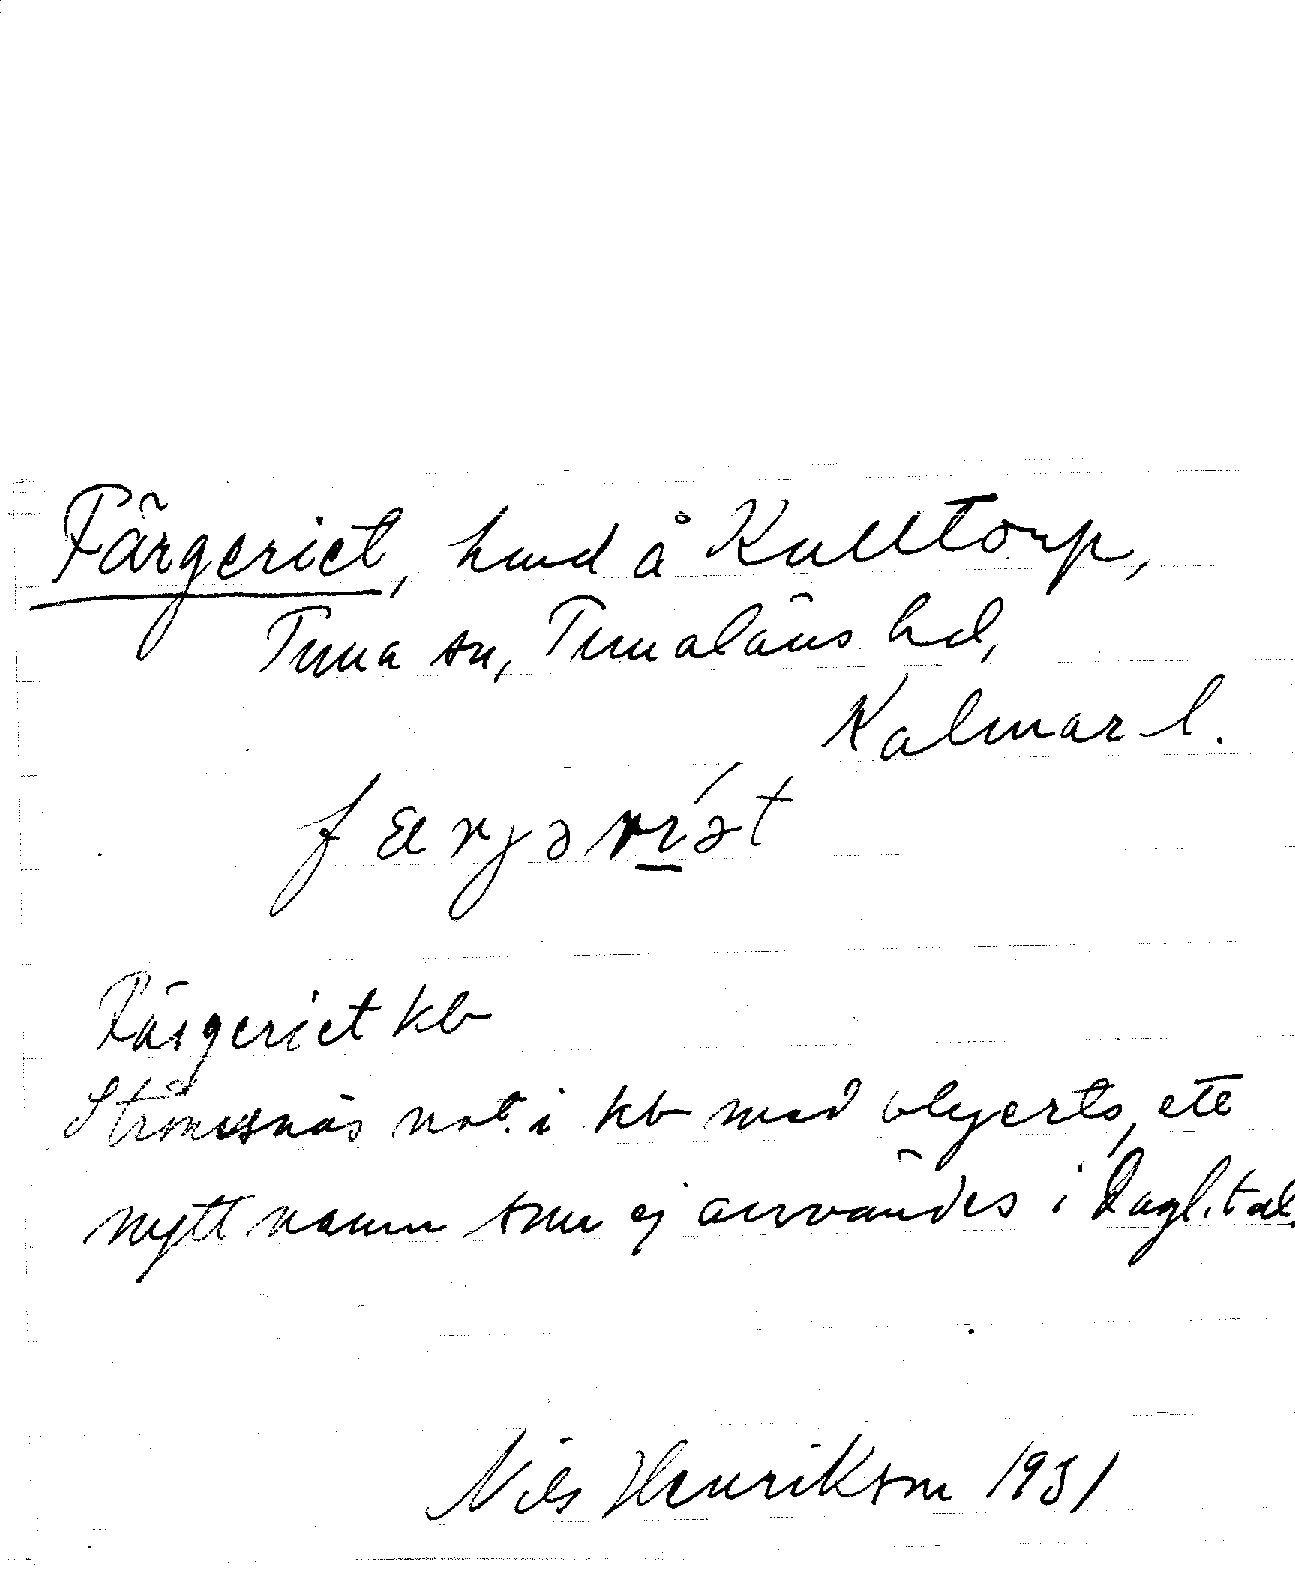 Färgeriet, hmd å Kulltorp,
Tuna sn, Tunaläns hd,
Kalmar l.
færjəríət
Färgeriet kb
Strömsnäs not. i kb med blyerts, ett
nytt namn som ej användes i dagl. tal.
Nils Henrikson 1931